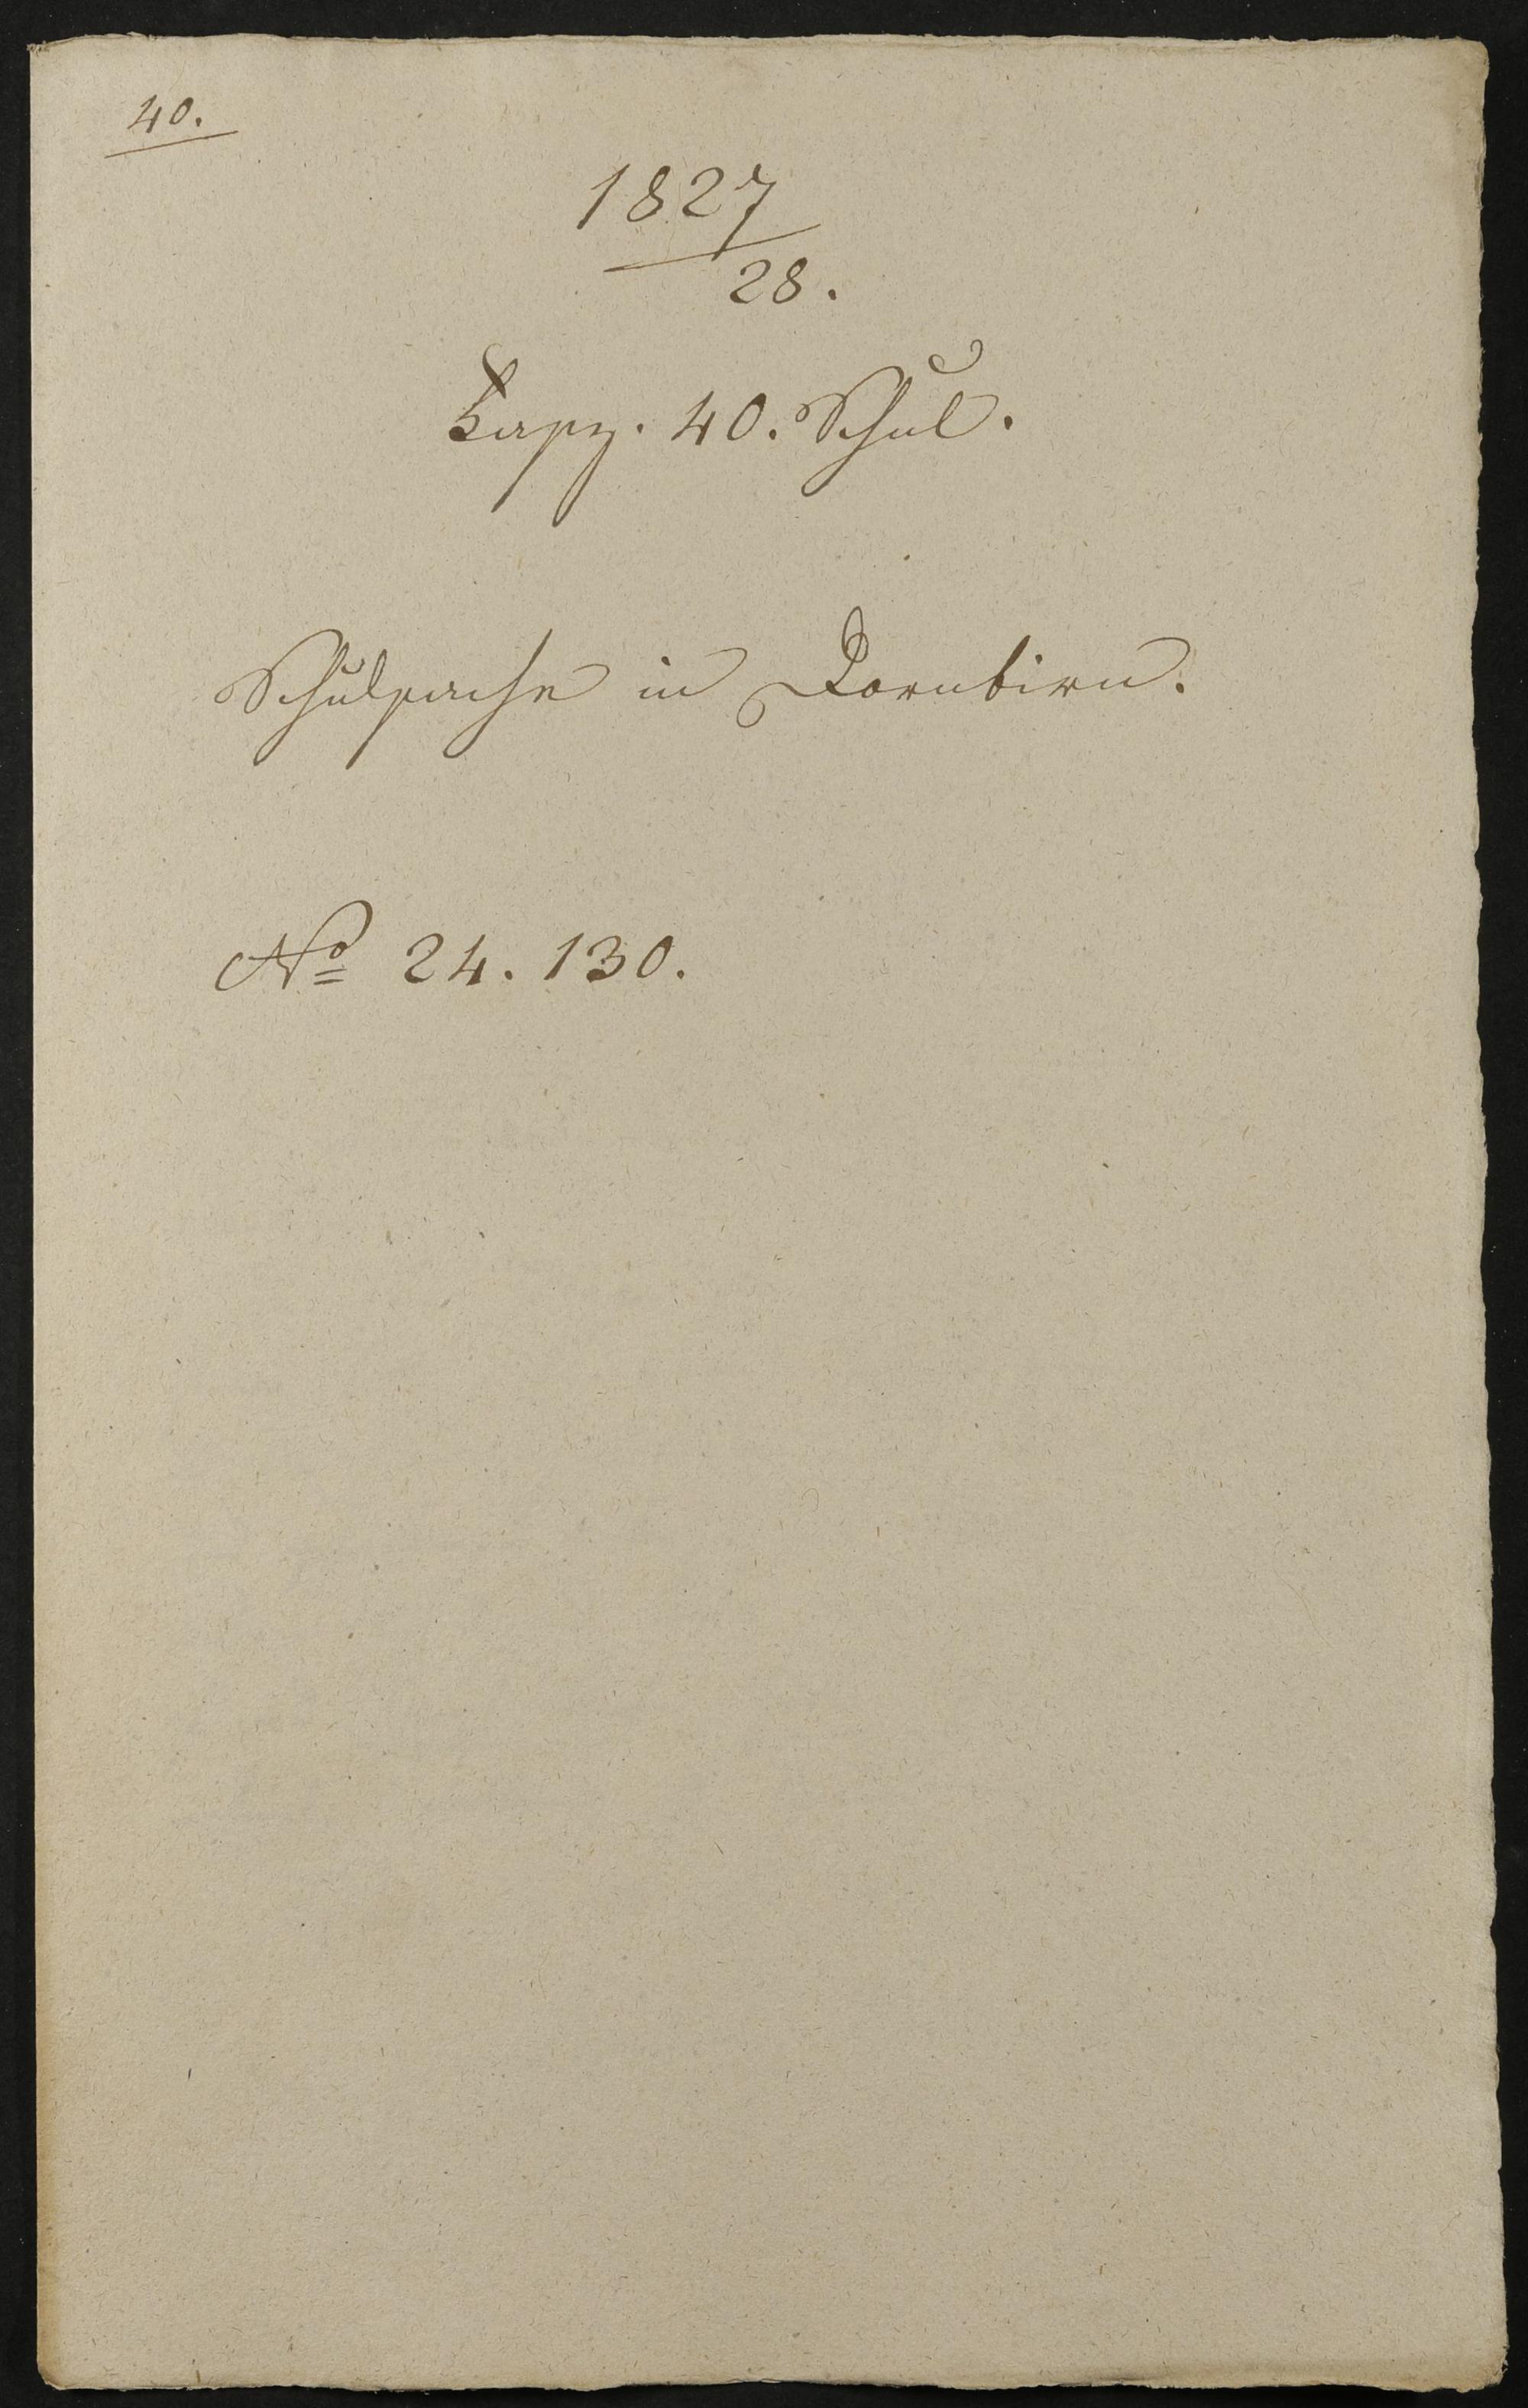 40.
1827
28.
Fasz. 40. Schul.
Schulsache in Dornbirn.
No 24. 130.